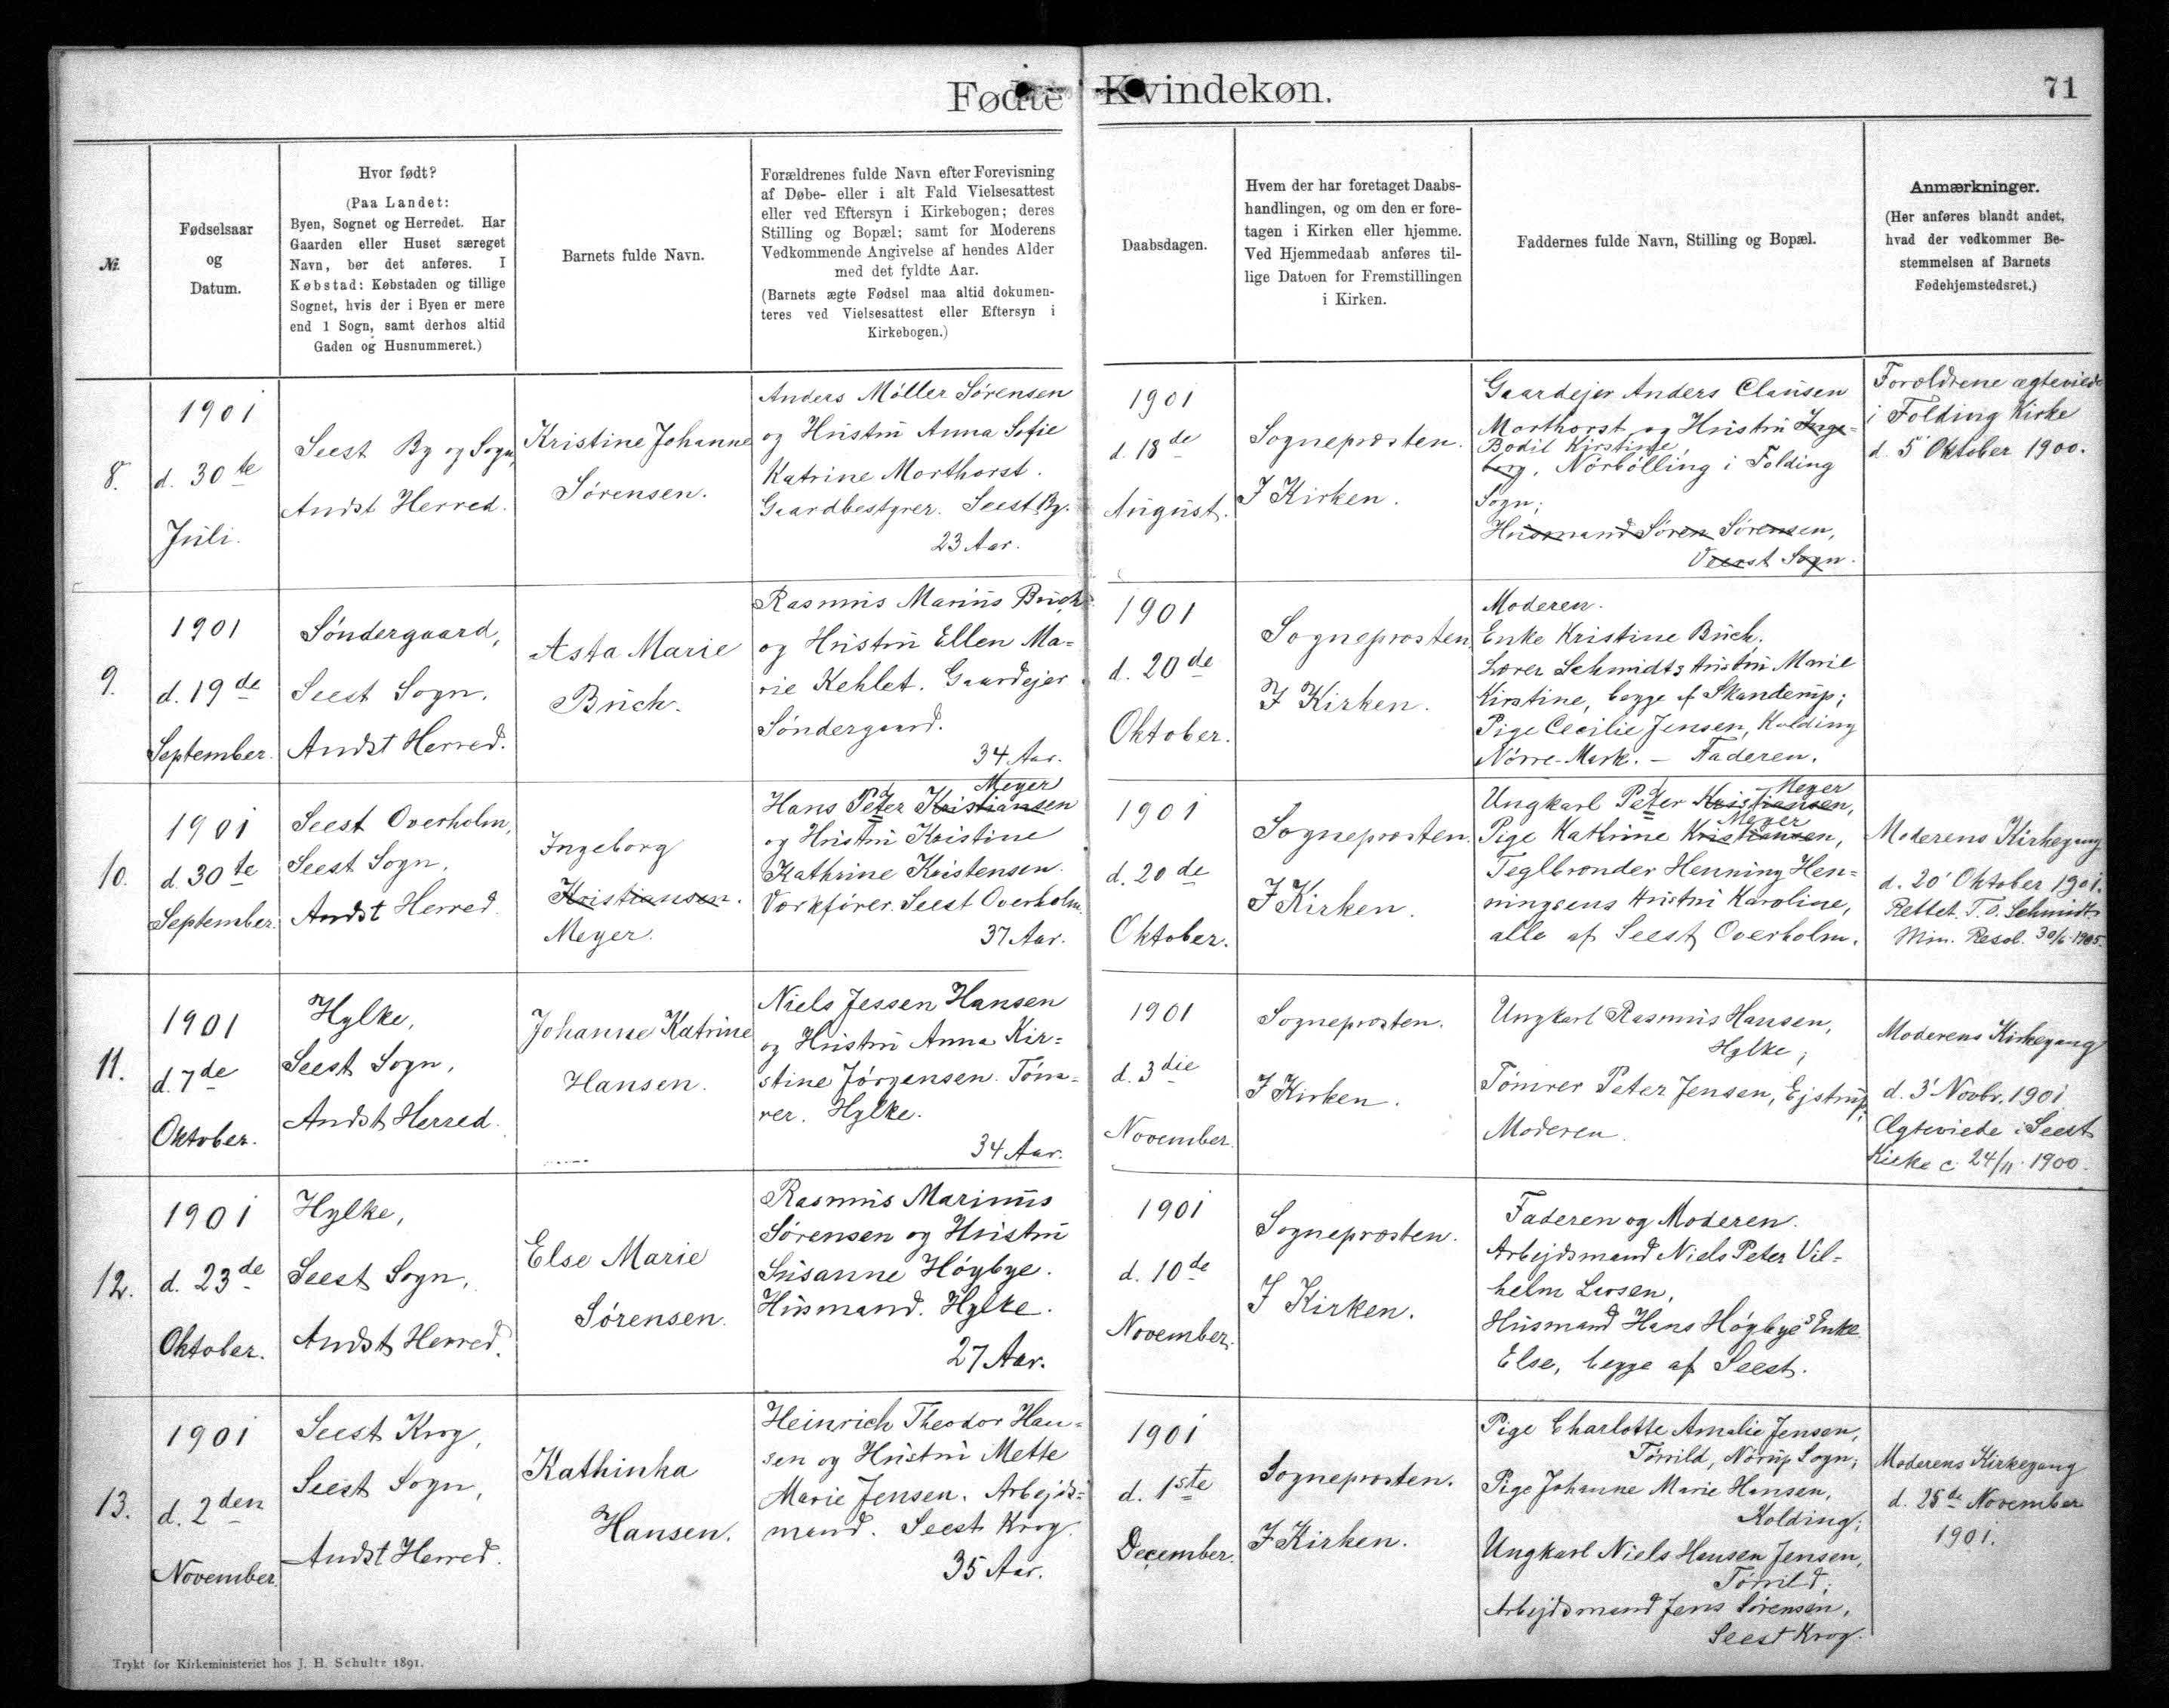 Fødte Kvindekøn.
71
Nr.
Fødselsaar
og
Datum.
Hvor født?
(Paa Landet:
Byen, Sognet og Herredet. Har
Gaarden eller Huset særeget
Navn, bør det anføres. I
Købstad: Købstaden og tillige
Sognet, hvis der i Byen er mere
end 1 Sogn, samt derhos altid
Gaden og Husnummeret.)
Barnets fulde Navn.
Forældrenes fulde Navn efter Forevisning
af Døbe- eller i alt Fald Vielsesattest
eller ved Eftersyn i Kirkebogen; deres
Stilling og Bopæl; samt for Moderens
Vedkommende Angivelse af hendes Alder
med det fyldte Aar.
(Barnets ægte Fødsel maa altid dokumen-
teres ved Vielsesattest eller Eftersyn i
Kirkebogen.)
Daabsdagen.
Hvem der har foretaget Daabs-
handlingen, og om den er fore-
tagen i Kirken eller hjemme.
Ved Hjemmedaab anføres til-
lige Datoen for Fremstillingen
i Kirken.
Faddernes fulde Navn, Stilling og Bopæl.
Anmærkninger.
(Her anføres blandt andet,
hvad der vedkommer Be-
stemmelsen af Barnets
Fødehjemstedsret.)
8.
1901
d. 30te
Juli.
Seest By og Sogn,
Andst Herred.
Kristine Johanne
Sørensen.
Anders Møller Sørensen
og Hustru Anna Sofie
Katrine Morthorst.
Gaardbestyrer. Seest By.
23 Aar.
1901
d. 18de
August.
Sognepræsten.
I Kirken.
Gaardejer Anders Clausen
Morthorst og Hustru Inge-
Bodil Kjrstine,
borg, Nørbølling i Folding
Sogn;
Husmand Søren Sørensen,
Veerst Sogn.
Forældrene ægteviede
i Folding Kirke
d. 5' Oktober 1900.
9.
1901
d. 19de
September.
Søndergaard,
Seest Sogn,
Andst Herred.
Asta Marie
Buch.
Rasmus Marius Buch
og Hustru Ellen Ma-
rie Kehlet. Gaardejer
Søndergaard.
34 Aar.
1901
d. 20de
Oktober.
Sognepræsten.
I Kirken.
Moderen.
Enke Kristine Buch.
Lærer Schmidts Hustru Marie
Kirstine, begge af Skanderup;
Pige Cecilie Jensen, Kolding
Nørre-Mark. – Faderen.
10.
1901
d. 30te
September.
Seest Overholm,
Seest Sogn,
Andst Herred.
Ingeborg
Kristiansen.
Meyer.
Meyer
Hans Peter Kristiansen
og Hustru Kristine
Kathrine Kristensen.
Værkfører. Seest Overholm.
37 Aar.
1901
d. 20de
Oktober.
Sognepræsten.
I Kirken.
Meyer
Ungkarl Peter Kristiansen,
Meyer
Pige Kathrine Kristiansen,
Teglbrænder Henning Hen-
ningsens Hustru Karoline,
alle af Seest Overholm.
Moderens Kirkegang
d. 20' Oktober 1901.
Rettet. T. O. Schmidt.
Min. Resol. 30/6 1905.
11.
1901
d. 7de
Oktober.
Hylke,
Seest Sogn,
Andst Herred.
Johanne Katrine
Hansen.
Niels Jessen Hansen
og Hustru Anna Kir-
stine Jørgensen. Tøm-
rer. Hylke.
34 Aar.
1901
d. 3die
November.
Sognepræsten.
I Kirken.
Ungkarl Rasmus Hansen,
Hylke;
Tømrer Peter Jensen, Ejstrup;
Moderen.
Moderens Kirkegang
d. 3' Novbr. 1901
Ægteviede i Seest
Kirke d. 24/11 1900.
12.
1901
d. 23de
Oktober.
Hylke,
Seest Sogn,
Andst Herred.
Else Marie
Sørensen.
Rasmus Marinus
Sørensen og Hustru
Susanne Høybye.
Husmand. Hylke.
27 Aar.
1901
d. 10de
November.
Sognepræsten.
I Kirken.
Faderen og Moderen.
Arbejdsmand Niels Peter Vil-
helm Larsen,
Husmand Hans Høybyes Enke
Else, begge af Seest.
13.
1901
d. 2den
November.
Seest Krog,
Seest Sogn,
Andst Herred.
Kathinka
Hansen.
Heinrich Theodor Han-
sen og Hustru Mette
Marie Jensen. Arbejds-
mand. Seest Krog.
35 Aar.
1901
d. 1ste
December.
Sognepræsten.
I Kirken.
Pige Charlotte Amalie Jensen,
Tørrild, Nørup Sogn;
Pige Johanne Marie Hansen,
Kolding;
Ungkarl Niels Hansen Jensen,
Tørrild;
Arbejdsmand Jens Sørensen,
Seest Krog.
Moderens Kirkegang
d. 25de November
1901.
Trykt for Kirkeministeriet hos J. H. Schultz 1891.